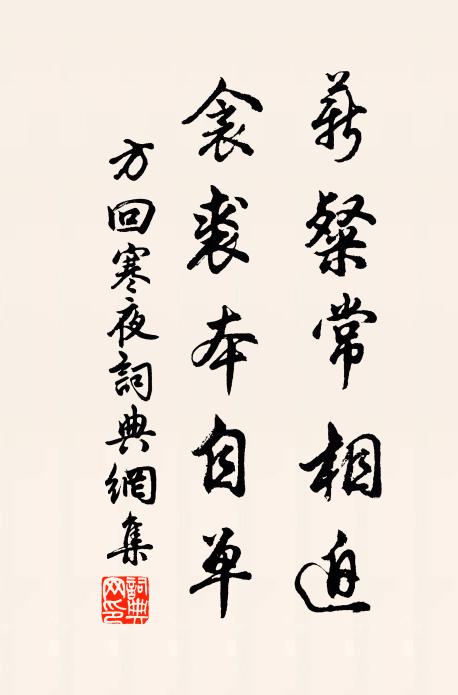 薪粲常相迫
衾裘本自单
方回寒夜詞典網集
詞典網印